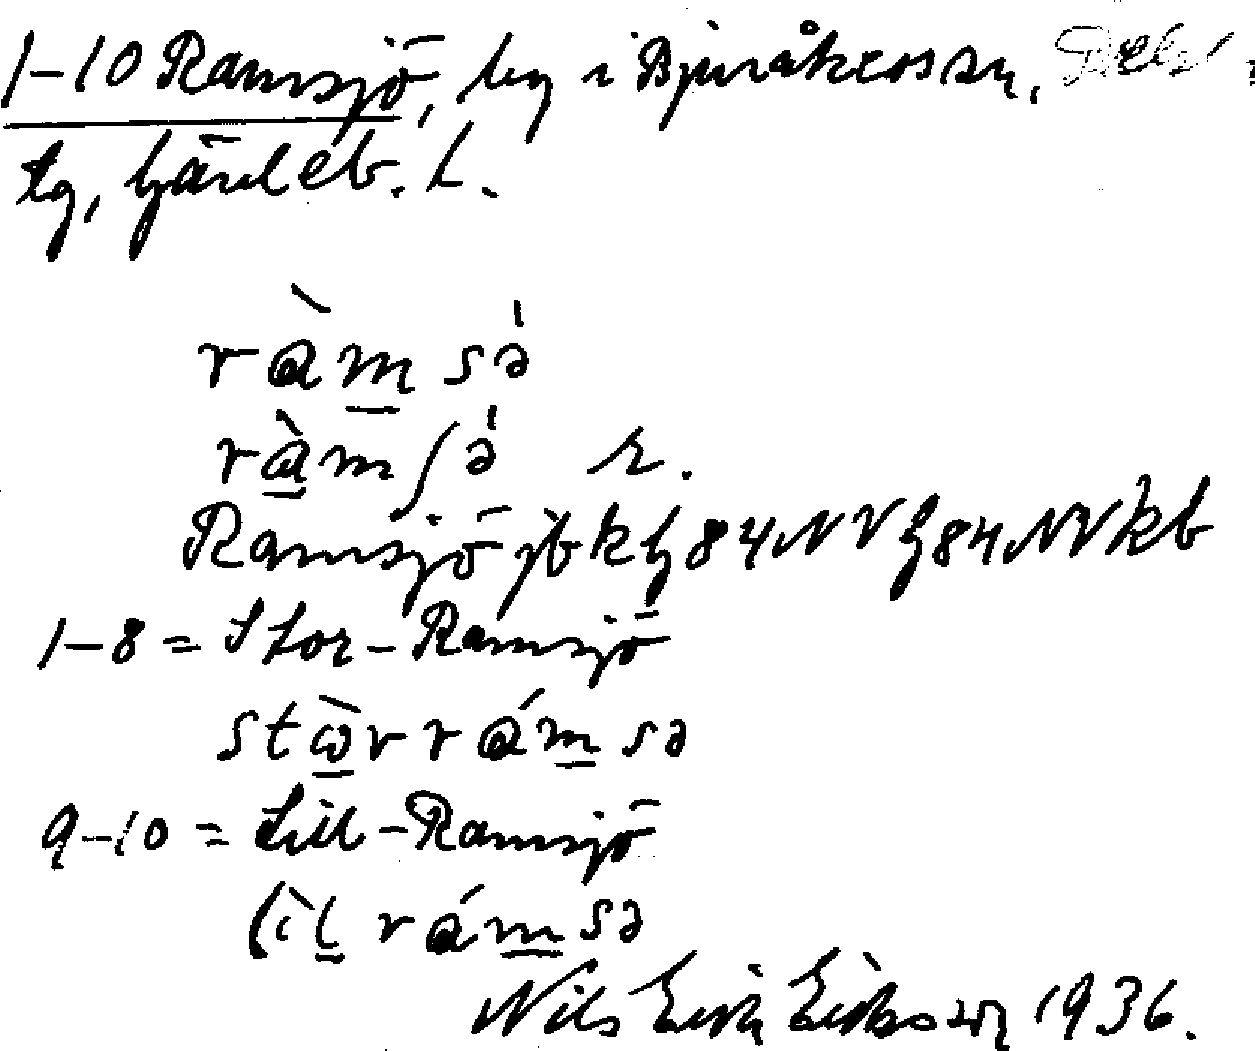 1-10 Ramsjö, by i Bjuråkers sn,
tg, Gävleb. L.
ràmsə̀
ràmʃə̀ r.
Ramsjö jb kb 84 NV 84 NV kb
1-8 = Stor-Ramsjö
stɷ̀r rámsə
9-10 = Lill-Ramsjö
lìl rámsə
Nils Erik Eriksson 1936.